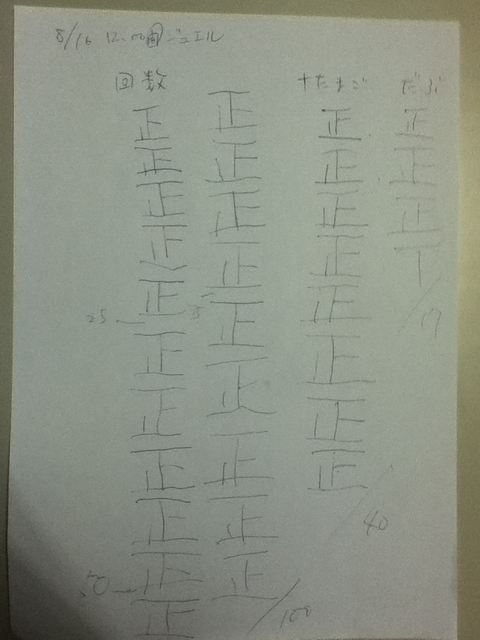 8/16 ジュエル
回数
正
正
正
正
正
25
正
正
正
正
正
50
正
正
正
正
正
正
正
正
正
正
/100
+たまご
正
正
正
正
正
正
正
正
/40
だぶ
正
正
正
丅
/17